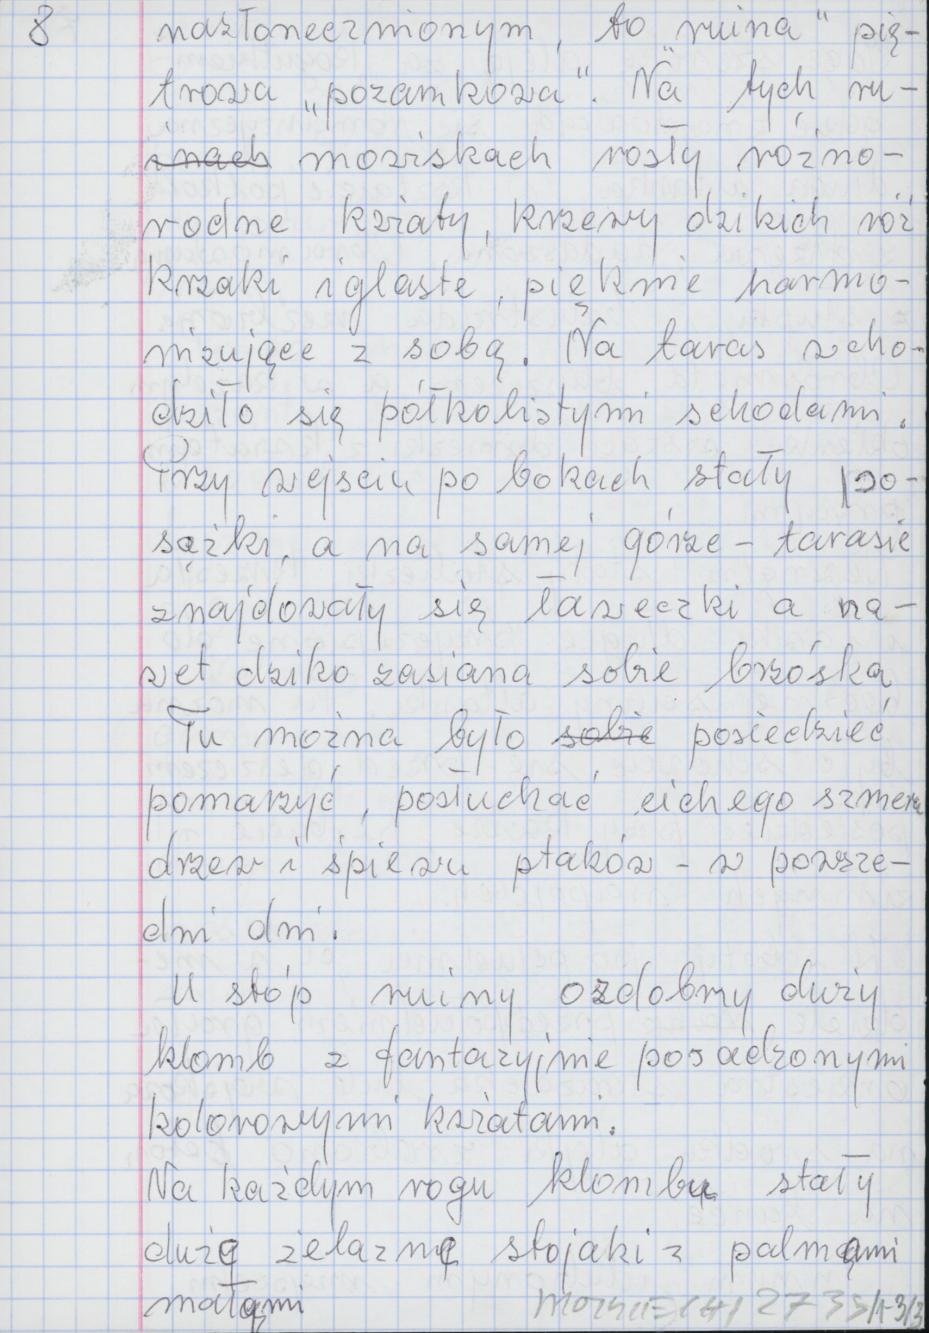 8 nasłonecznionym, to "ruina" pię-
trowa „pozamkowa". Na tych ru-
inach mowiskach rosły różno-
rodne kwiaty, krzewy dzikich róż
krzaki iglaste, pięknie harmo-
nizujące z sobą. Na taras wcho-
dziło się półkolistymi schodami.
Przy wejściu po bokach stały po-
sążki, a na samej górze - tarasie
znajdowały się ławeczki a na-
wet dziko zasiana sobie brzóska
Tu można było sobie posiedzieć
pomarzyć, posłuchać cichego szmeru
drzew i śpiewu ptaków - w powsze-
dni dni.
U stóp ruiny ozdobny duży
klomb z fantazyjnie posadzonymi
kolorowymi kwiatami.
Na każdym rogu klombu stały
duże żelazne stojaki z palmami
małymi
2735/1-3/3